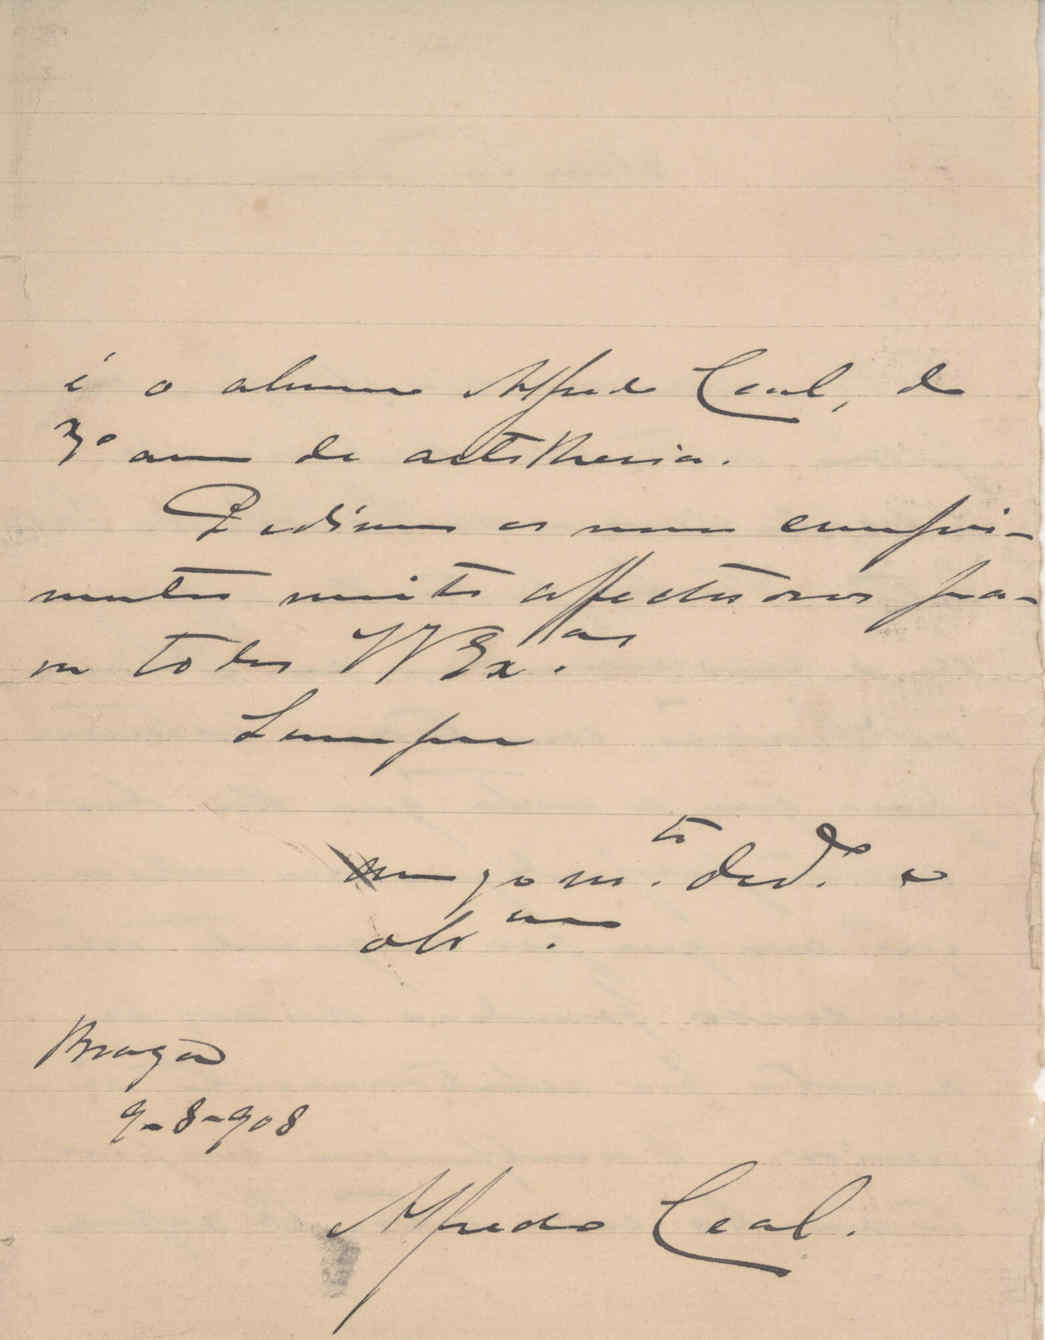 é o alumno Alfredo Leal, do
3º anno de artilheria.
Pedimos os meus cumpri-
mentos muito affectuosos pa-
ra todos VV Ex.as
Sempre
amigo m.to ded.o e
obr.mo
Braga
9-8-908
Alfredo Leal.